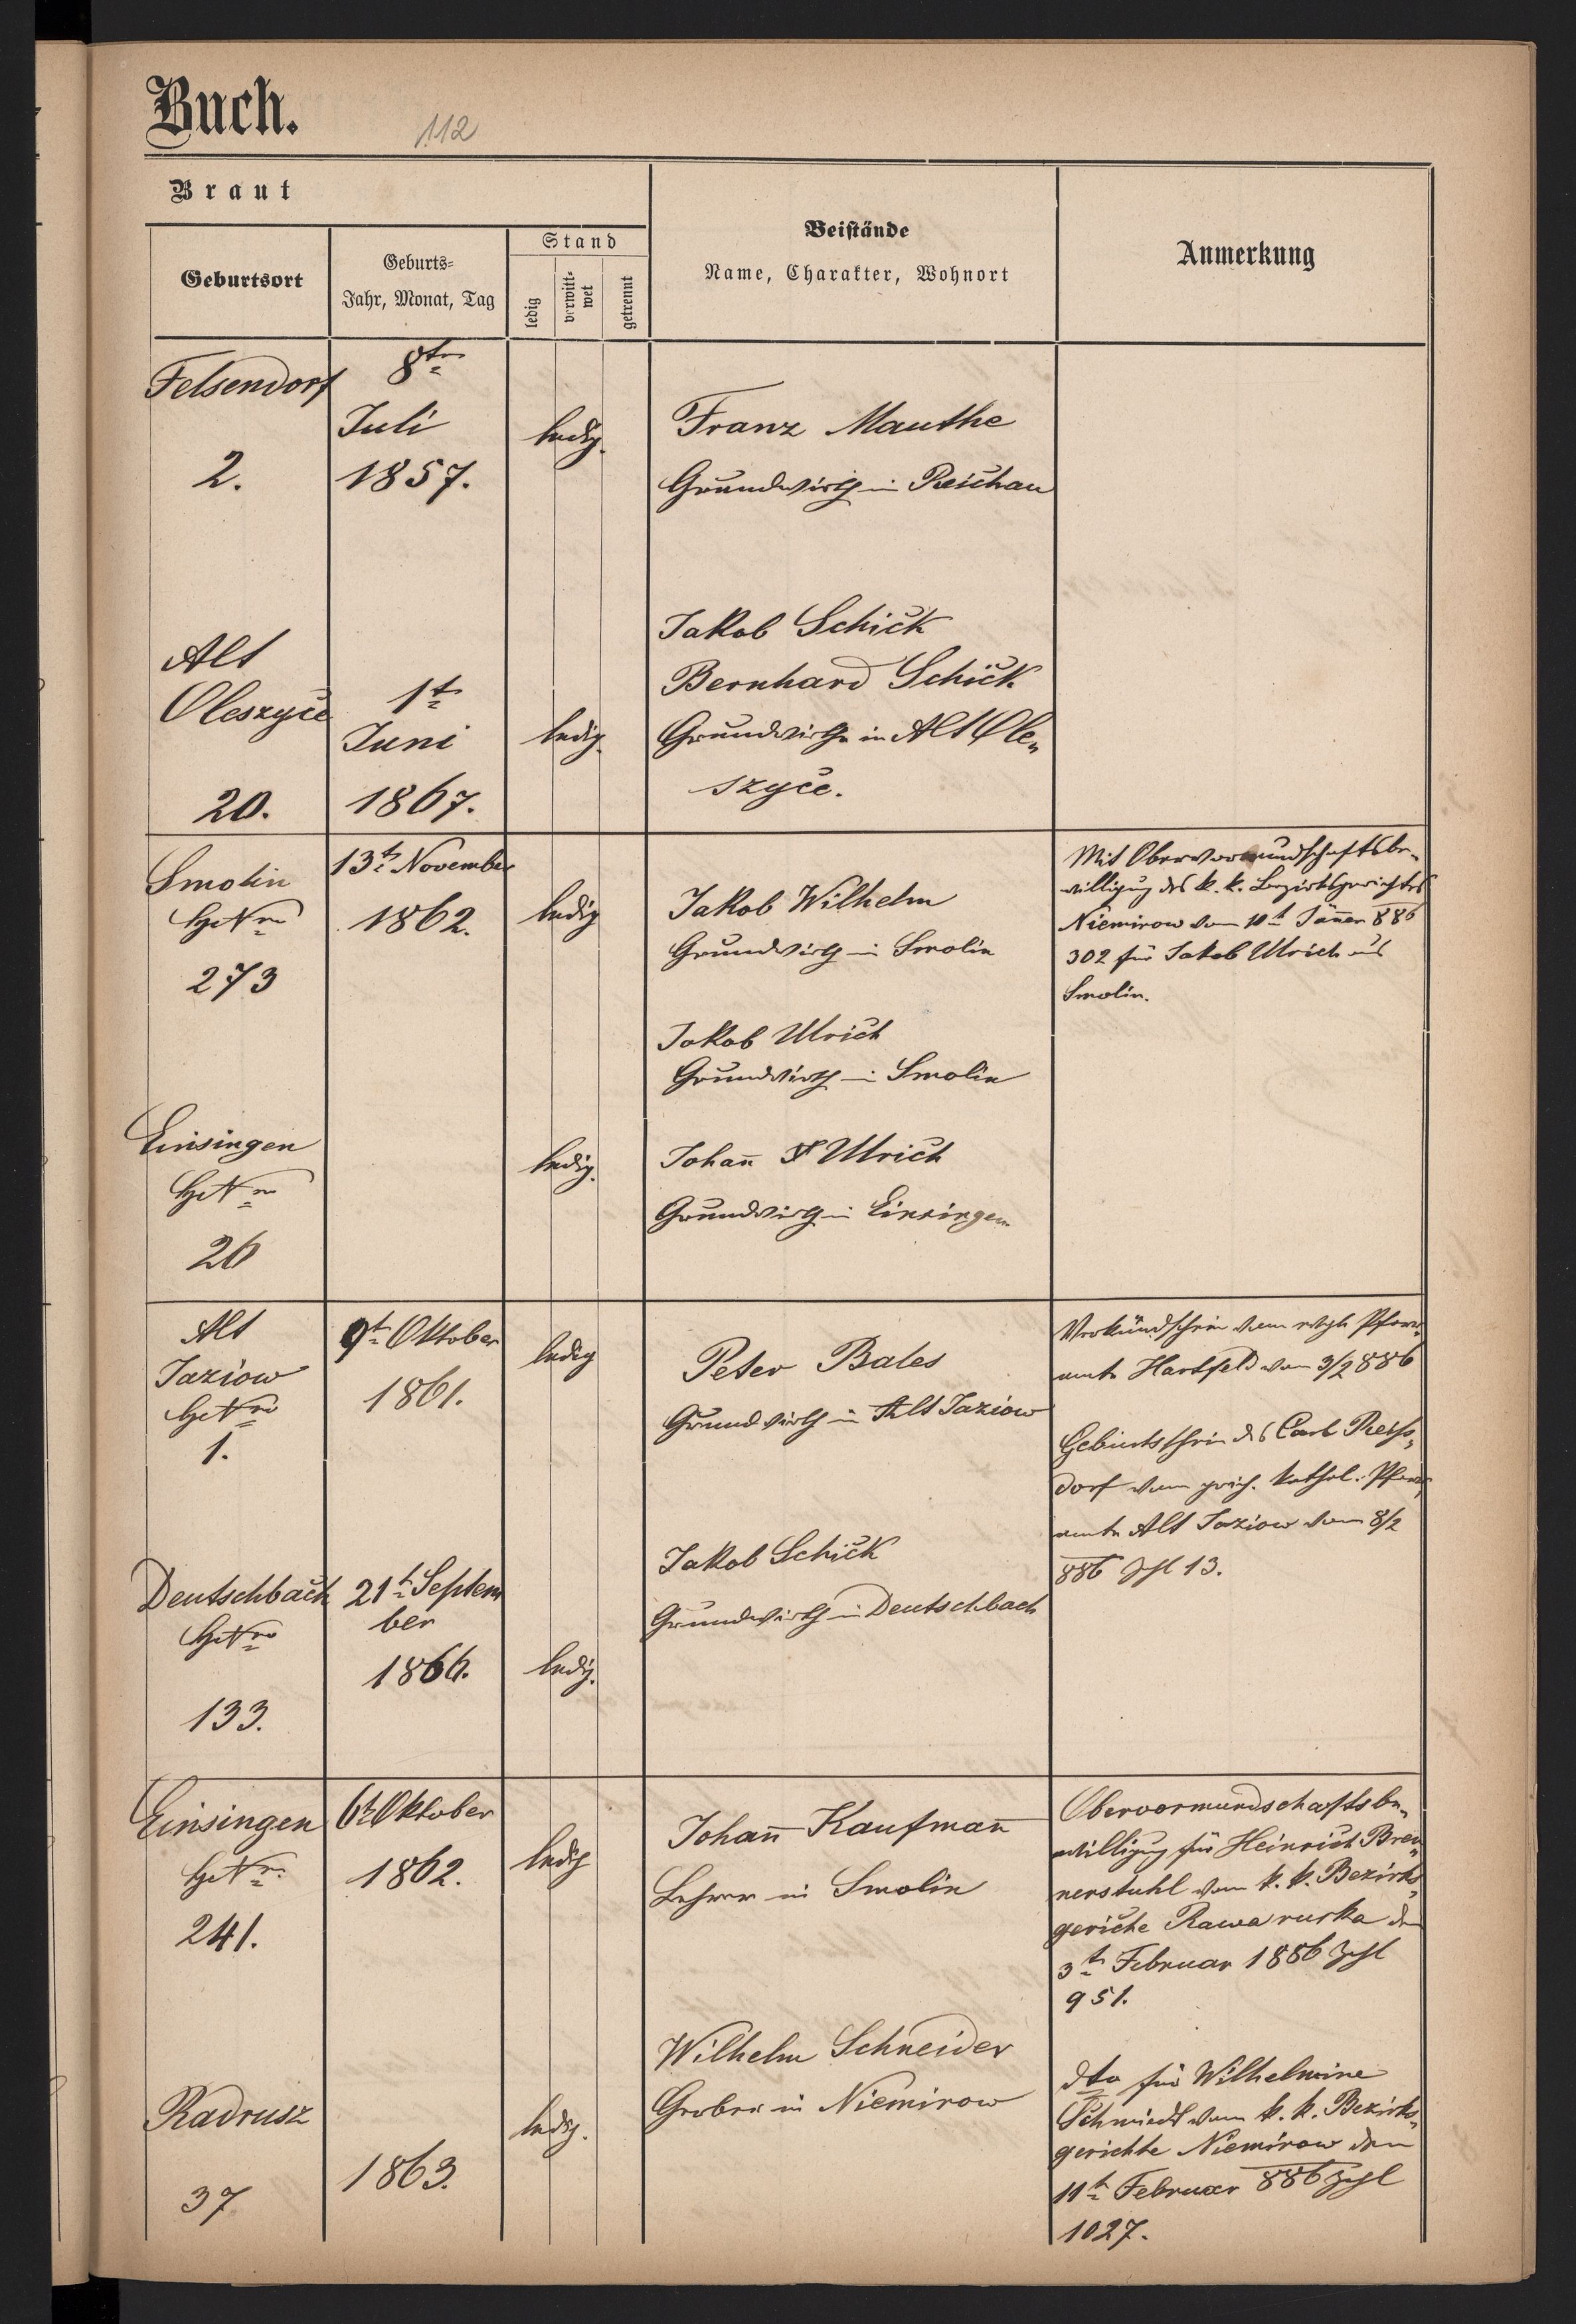 Buch.
112
Braut
Geburtsort
Geburts-
Jahr, Monat, Tag
Stand
ledig
verwitt-
wet
getrennt
Beistände
Name, Charakter, Wohnort
Anmerkung
Felsendorf
2.
8t
Juli
1857.
ledig.
Franz Mauthe
Grundwirth in Reichau
Alt
Oleszyce
20.
1t
Juni
1867.
ledig.
Jakob Schick
Bernhard Schick
Grundwirthe in Alt Ole„
szyce.
Smolin
HsNro
273
13t November
1862.
ledig
Jakob Wilhelm
Grundwirth in Smolin
Jakob Ulrich
Grundwirth in Smolin
Mit Obervormundschaftsbe„
willigung des k. k. Bezirksgerichtes
Niemirow vom 10t Jänner 886
302 für Jakob Ulrich aus
Smolin.
Einsingen
HsNro
26
ledig.
Johan̄ Ulrich
Grundwirth in Einsingen
Alt
Jaziow
HsNro
1.
9t Oktober
1861.
ledig
Peter Bales
Grundwirth in Alt Jaziow
Verkündschein vom evgl. Pfarr„
amte Hartfeld vom 3/2 886
Geburtsschein des Carl Reiss„
dorf vom griech. kathol. Pfarr„
amte Alt Jaziow vom 8/2
886 Zhl 13.
Deutschbach
HsNro
133.
21t Septem
ber
1866.
ledig.
Jakob Schick
Grundwirth in Deutschbach
Einsingen
HsNro
241.
6t Oktober
1862.
ledig
Johan̄ Kaufman̄
Lehrer in Smolin
Obervormundschaftsbe„
willigung für Heinrich Bren„
nerstuhl vom k. k. Bezirks„
gerichte Rawa ruska den
3t Februar 1886 Zhl
951.
Radrusz
37
1863.
ledig.
Wilhelm Schneider
in Niemirow
dto für Wilhelmine
Schmiedt vom k. k. Bezirks„
gerichte Niemirow den
11t Februar 886 Zhl
1027.